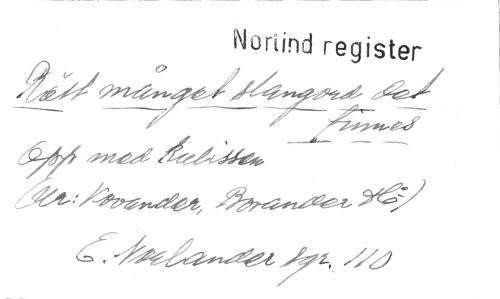 Norlind register
Näst månget slangord det
finnes
Opp med kulissen
(Ur: Kovander, Bovander Hb:)
E. Norlander sgr. 110